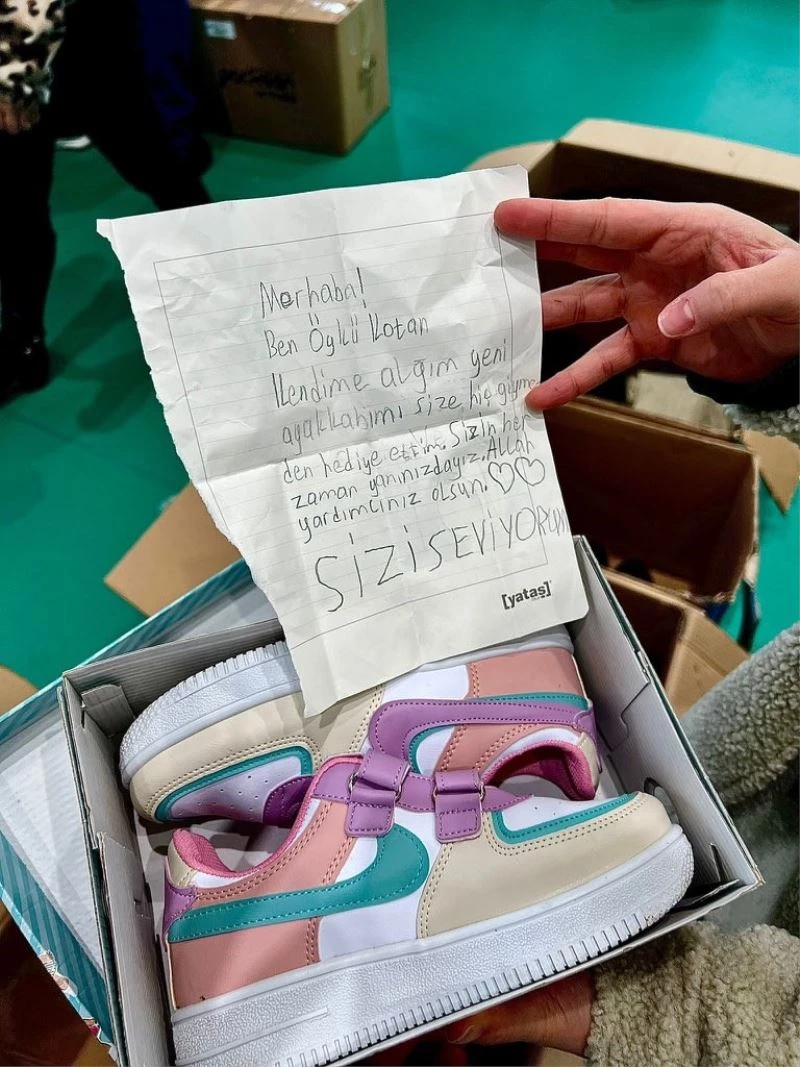 Merhaba!
Ben Öykü Kotan
Kendime alğım yeni
ayakkabımı size, hiç giyme
den hediye ettim. Sizin her
zaman yanınızdayız. Allah
yardımcınız olsun.
SİZİ SEVİYORUM
[yataş]